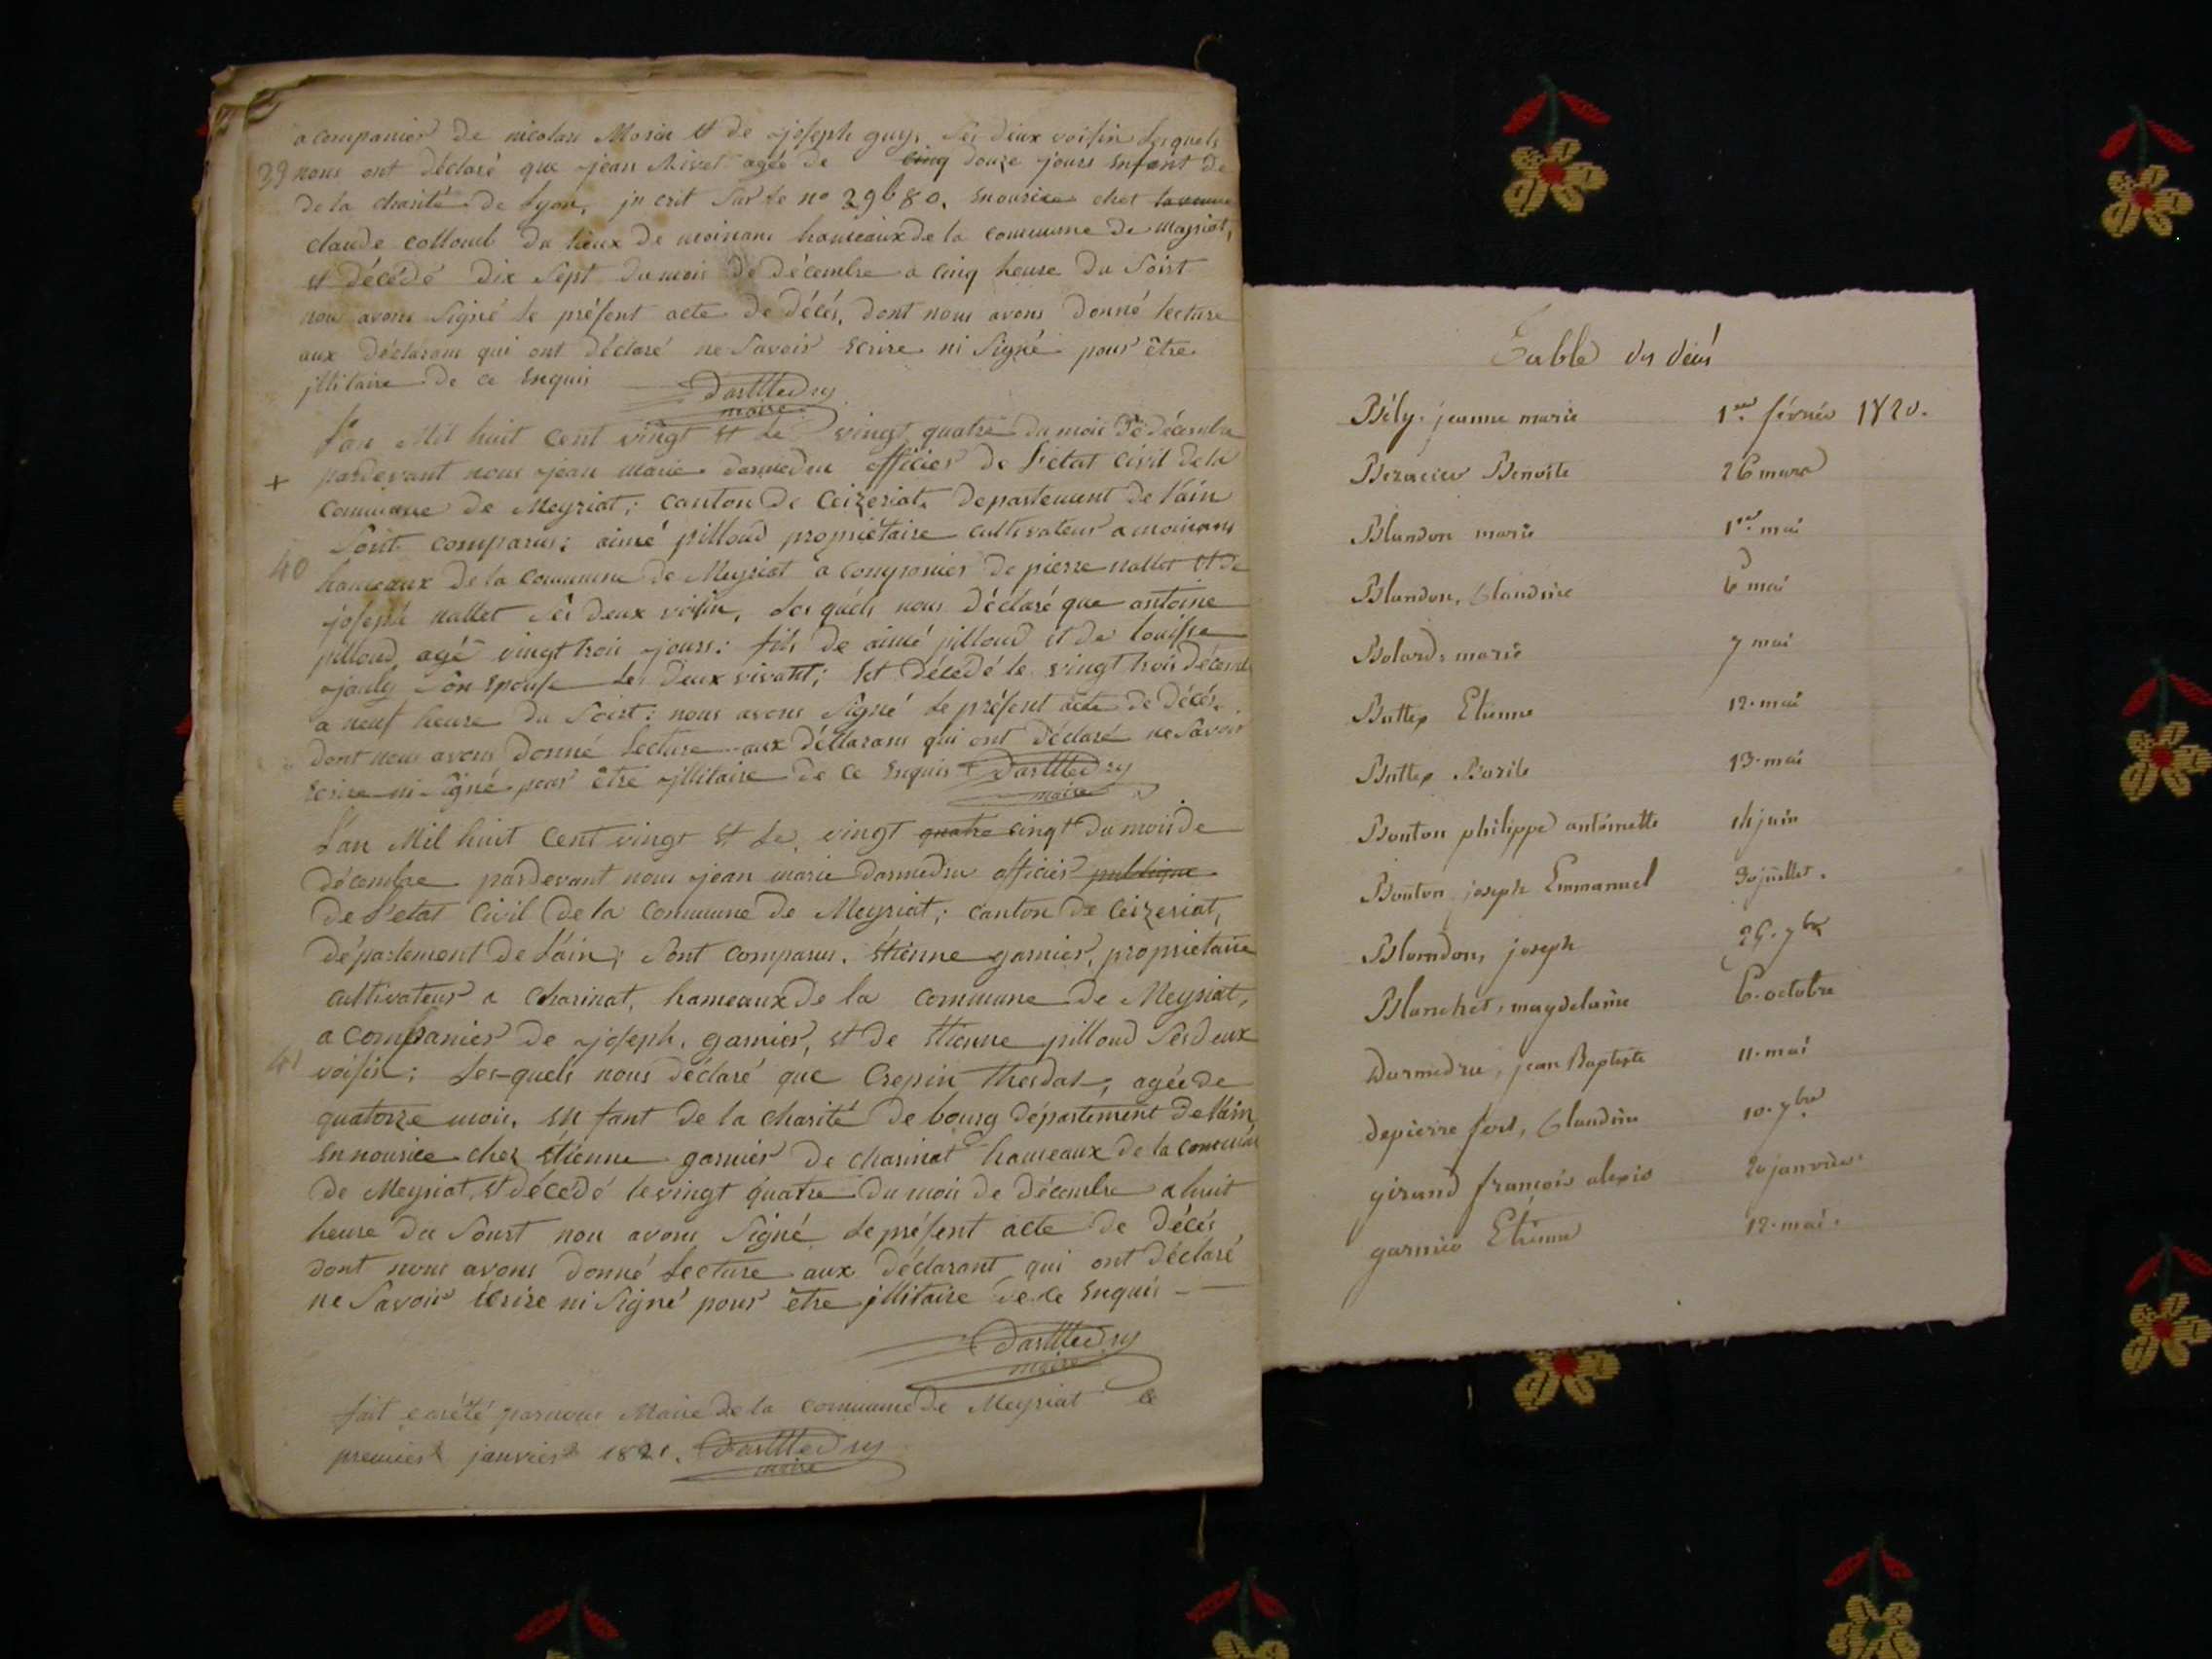 acompanier de nicolas Morin et de joseph guy, ses deux voisin lesquels
39 nous ont déclaré que jean Rivet agée de cinq douze jours enfent de
de la charité de Lyon, in crit sur le no 29680. enourice chet la veuve
claude collomb du lieux de moinans hameaux de la commune de Meyriat,
et décédé dix sept du mois de décembre a cinq heure du Soirt
nou avons Signé le présent acte de décés, dont nous avons donné lecture
aux déclarans qui ont déclaré ne Savoir ecrire ni Signé pour être
jllitaire de ce enquis Darmedru
maire
L'an Mil huit cent vingt et le vingt quatre du mois de décembre
+ pardevant nous jean marie darmedru officier de l'état civil de la
commune de Meyriat; canton de Ceizeriat, departement de l'ain
Sont comparus: aimé pilloud propriétaire cultivateur a moinans
40 hameaux de la commune de Meyriat acompanier de pierre nallet et de
joseph nallet ses deux voisin, lesquels nous déclaré que antoine
pilloud, agé vingt trois jours: fils de aimé pilloud et de louisse
jouly son epouse les deux vivatt; Et décedé le vingt trois décemb
a neuf heure du Soirt: nous avons Signé le présent acte de décés,
dont nous avons donné lecture aux déclarans qui ont déclaré ne Savoir
ecrire ni Signé pour être jllitaire de ce enquis Darmedru
maire
L'an Mil huit cent vingt et le vingt quatre cingt du mois de
décembre pardevant nous jean marie darmedru officier publique
de l'etat civil de la commune de Meyriat; canton de Ceizeriat,
département de l'ain; Sont comparus. étienne garnier, propriétaire
cultivateur a charinat, hameaux de la commune de Meyriat,
a companier de joseph, garnier, et de étienne pilloud Ses deux
41 voisin: Les-quels nous déclaré que Crepin thesdat, agée de
quatorze mois, en fant de la charité de bourg département de l'ain
en nourice chez étienne garnier de charinat hameaux de la commune
de Meyriat, et décédé le vingt quatre du mois de décembre a huit
heure du Soirt nou avons Signé le présent acte de décés
dont nous avons donné lecture aux déclarant qui ont déclaré
ne Savoir ecrire ni Signé pour être jllitaire de ce enquis
Darmedru
maire
fait e arété parnous Maire de la commune de Meyriat le
premiert janviert 1821. Darmedru
maire
Table des décés
Bély. jeanne marie 1er. février 1820.
Bezacier Benoite 26 mars
Blandon marie 1er. mai
Blandon, Claudine 6 mai
Bolard, marie 7 mai
Buttex Etienne 12. mai
Buttex Basile 13. mai
Bouton philippe antoinette 14 juin
Bouton joseph Emmanuel 30 juillet.
Blondon, joseph 25. 7bre
Blanchet, magdelaine 6. octobre
Darmedru, jean Baptiste 11. mai
depierre fort, Claudine 10. 7bre
girand francois alexis 20 janvier.
garnier Etienne 12. mai.